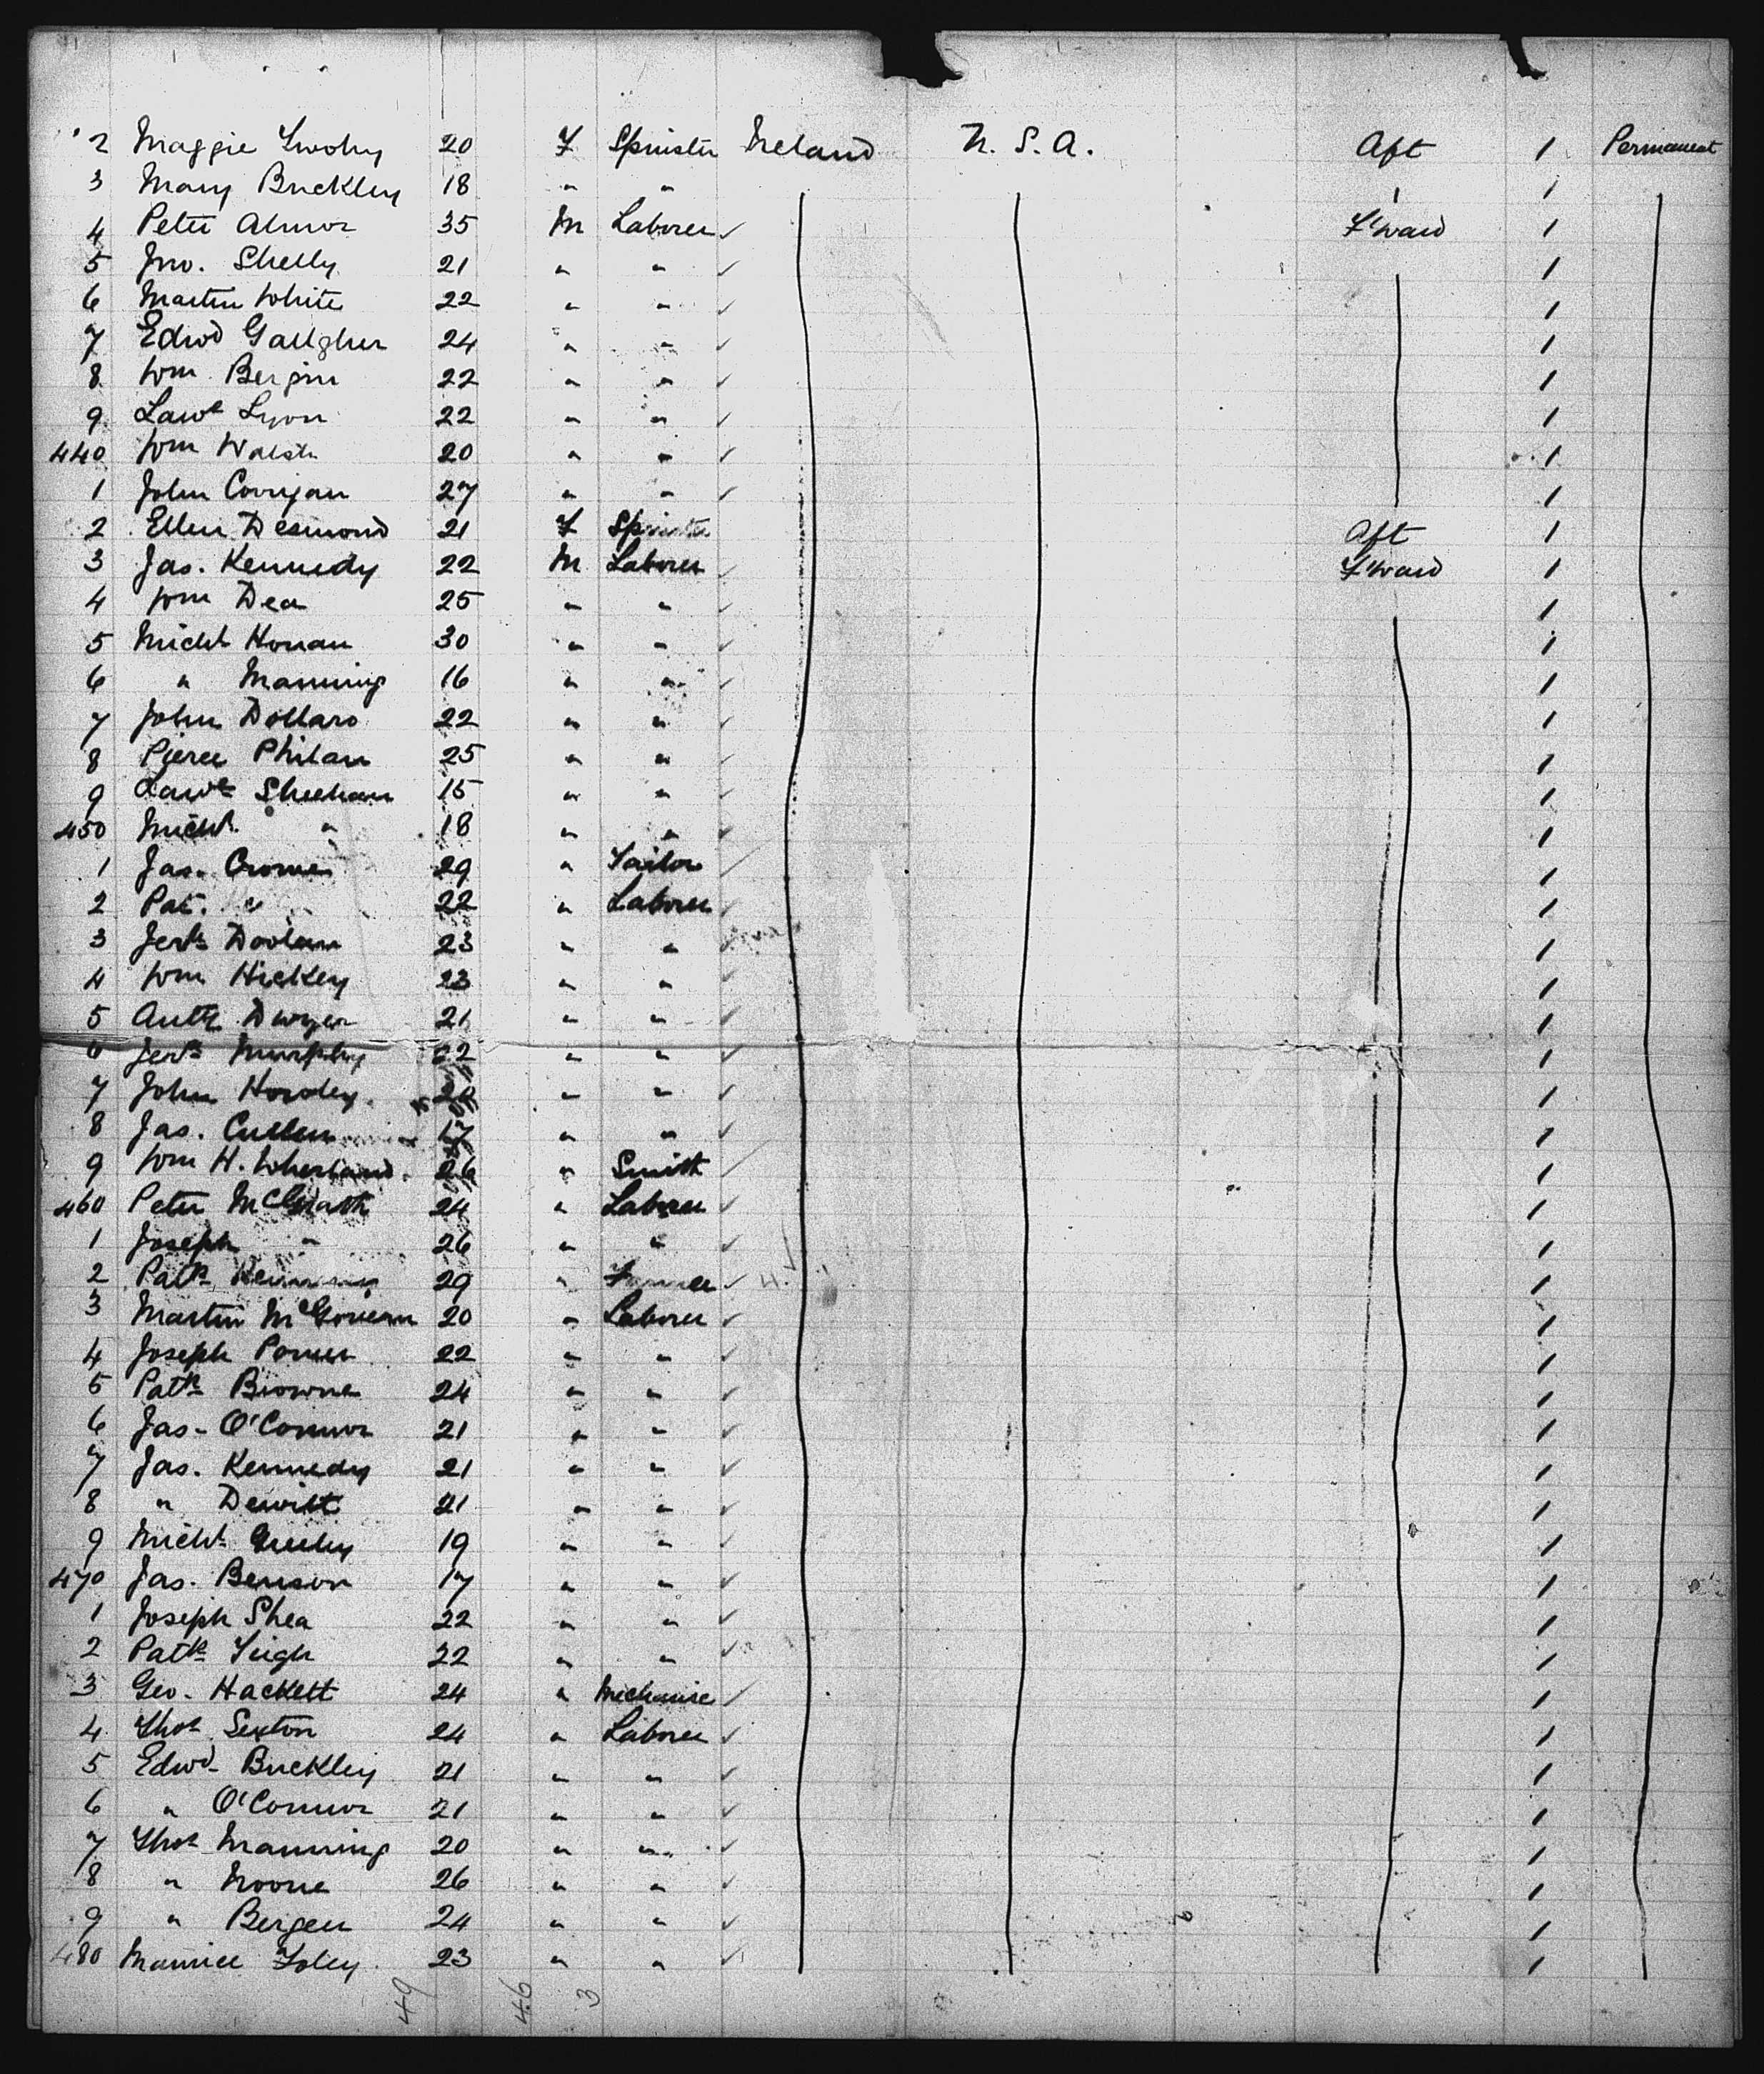 2 Maggie Twohy 20 F Spinster Ireland U. S. A. Aft 1 Permanent
3 Mary Buckley 18 " " 1
4 Peter Almor 35 M Laborer ✓ F'ward 1
5 Jno. Shelly 21 " " ✓ 1
6 Martin White 22 " " ✓ 1
7 Edwd Gallgher 24 " " ✓ 1
8 Wm Bergin 22 " " ✓ 1
9 Lawce Lyon 22 " " ✓ 1
440 Wm Walsh 20 " " ✓ 1
1 John Corrigan 27 " " ✓ 1
2 Ellen Desmond 21 F Spinster Aft 1
3 Jas. Kennedy 22 M Laborer ✓ F'ward 1
4 Wm Dea 25 " " ✓ 1
5 Michl Honan 30 " " ✓ 1
6 " Manning 16 " " ✓ 1
7 John Dollard 22 " " ✓ 1
8 Pierce Philan 25 " " ✓ 1
9 Lawce Sheehan 15 " " ✓ 1
450 Michl. " 18 " " ✓ 1
1 Jas. Crowe 29 " Tailor ✓ 1
2 Pat. " 22 " Laborer ✓ 1
3 Jerh Doolan 23 " " ✓ 1
4 Wm Hickey 23 " " ✓ 1
5 Anty Dwyer 21 " " ✓ 1
6 Jerh Murphy 22 " " ✓ 1
7 John 20 " " ✓ 1
8 Jas. Cullen 17 " " ✓ 1
9 Wm H. 26 " Smith ✓ 1
460 Peter McGrath 24 " Laborer ✓ 1
1 Joseph " 26 " " ✓ 1
2 Patk 29 " ✓ 1
3 Martin McGovern 20 " Laborer ✓ 1
4 Joseph Power 22 " " ✓ 1
5 Patk Browne 24 " " ✓ 1
6 Jas. O'Connor 21 " " ✓ 1
7 Jas. Kennedy 21 " " ✓ 1
8 " Dewitt 21 " " ✓ 1
9 Michl 19 " " ✓ 1
470 Jas. Benson 17 " " ✓ 1
1 Joseph Shea 22 " " ✓ 1
2 Patk 22 " " ✓ 1
3 Geo. Hackett 24 " Mechanic ✓ 1
4 Thos Sexton 24 " Laborer ✓ 1
5 Edwd Buckley 21 " " ✓ 1
6 " O'Connor 21 " " ✓ 1
7 Thos Manning 20 " " ✓ 1
8 " Noone 26 " " ✓ 1
9 " Bergen 24 " " ✓ 1
480 Maurice Foley 23 " " ✓ 1
49 46 3